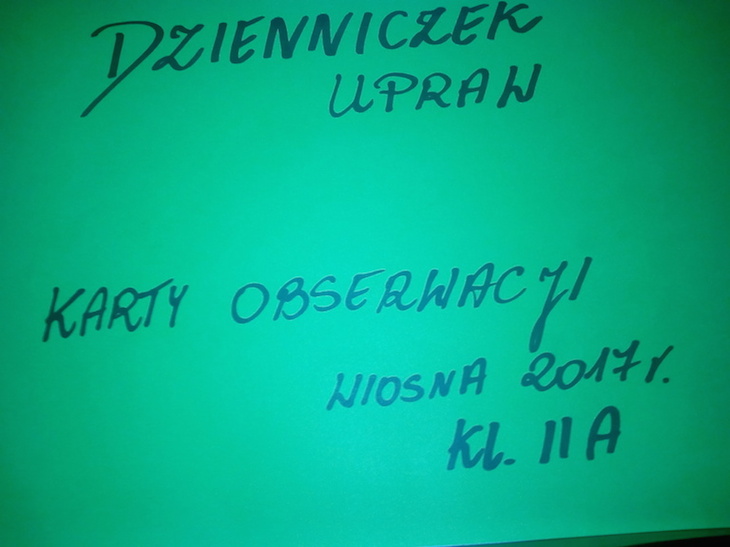 DZIENNICZEK
UPRAW
KARTY OBSERWACJI
WIOSNA 2017 r.
Kl. II A